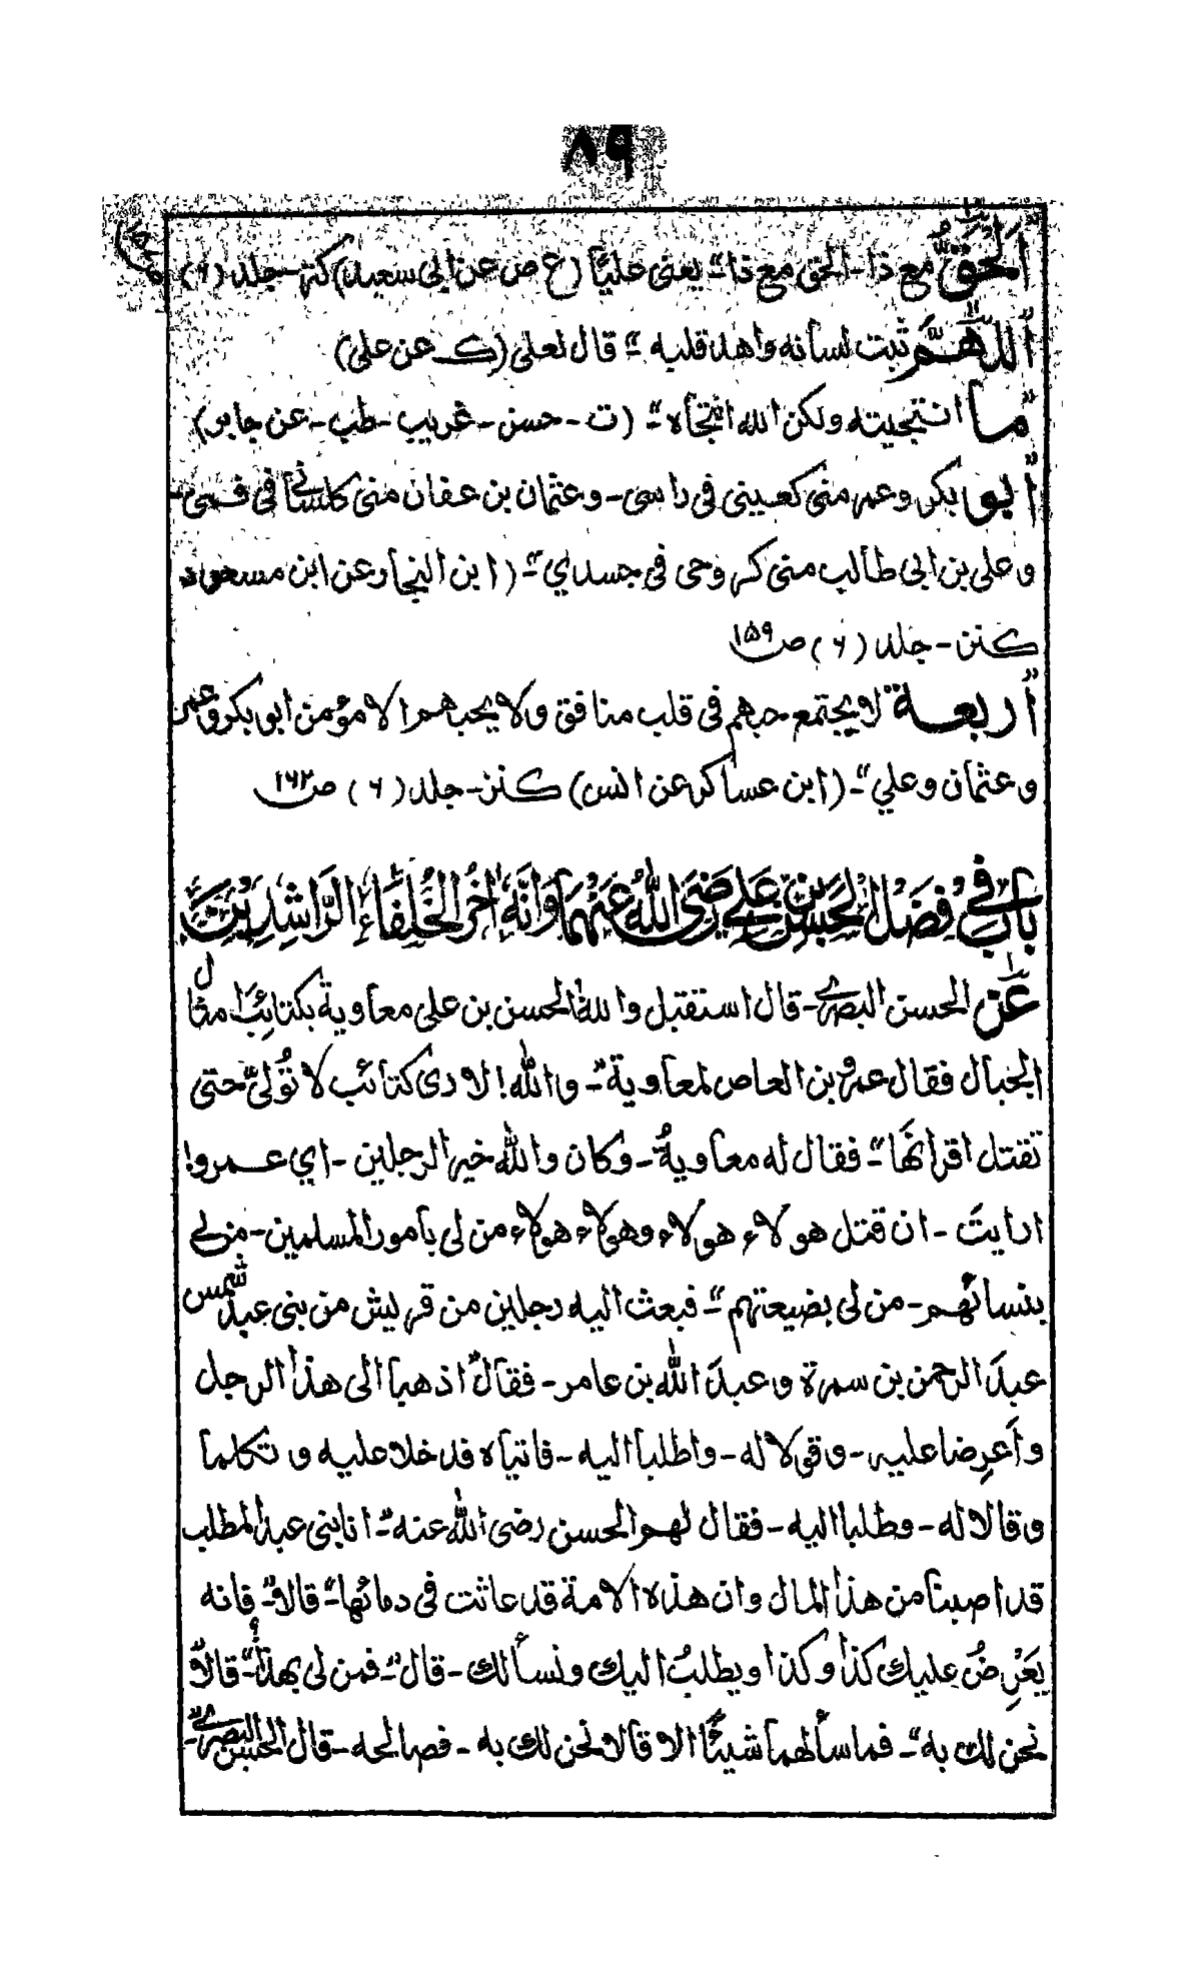 ٨٩
"اَلْحَقُّ مع ذا - الحق مع ذا" - يعنى علياً (ع ض عن ابى سعيد) كنز - جلد (٦)
"اَللّٰهُمَّ ثبت لسانه واهد قلبه" - قال لعلى (ك عن على)
"ما انتجيته ولكن الله انتجاه" - (ت - حسن - غريب - طب - عن جابر)
"ابو بكر وعمر منى كعينى فى راسى - وعثمان بن عفان منى كلسانى فى فمى -
وعلى بن ابى طالب منى كروحى فى جسدي" - (ابن النجار عن ابن مسعود
كنز - جلد (٦) ص١٥٩
"اربعة لا يجتمع حبهم فى قلب منافق ولا يحبهم الا مؤمن ابو بكر وعمر
وعثمان وعلي" - (ابن عساكر عن انس) كنز - جلد (٦) ص١٦٢
بابٌ فِي فِضَلِ الْحَسَنِ بْنِ عَلِي رَضِيَ اللّٰهُ عَنْهُمَا وَانَّهُ اٰخِرُ الْخُلَفَاءِ الرَّاشِدِيْنَ
عَن الحسن البصرى - قال استقبل واللهُ الحسن بن على معاوية بكتائِبَ امثال
الجبال فقال عمرو بن العاص لمعاوية" - والله! لارى كتائب لا تُوَلّى حتى
تقتل اقرانَها" - فقال له معاويةُ - وكان والله خير الرجلين - اي عمرو!
ارايتَ - ان قتل هولاء هولاء وهولاء هولاء من لى بامور المسلمين - من لى
بنسائهم - من لى بضيعتهم" - فبعث اليه رجلين من قريش من بنى عبد شمس
عبدَ الرحمن بن سمرة وعبدَ الله بن عامر - فقال" اذهبا الى هذا الرجل
وأعرِضا عليه - وقولا له - واطلبا اليه - فاتياه فدخلا عليه وتكلما
وقالا له - وطلبا اليه - فقال لهم الحسن رضى الله عنه" - انا بنى عبد المطلب
قد اصبنا من هذا المال وان هذه الامة قد عاثت فى دمائها" - قالا" - فانه
يَعْرِضُ عليك كذا وكذا ويطلبُ اليك ونسألك - قال" - فمن لى بهذا؟" - قالا"
نحن لك به" - فما سألهما شيئًا الا قالا نحن لك به - فصالحه - قال الحسن البصرى" -